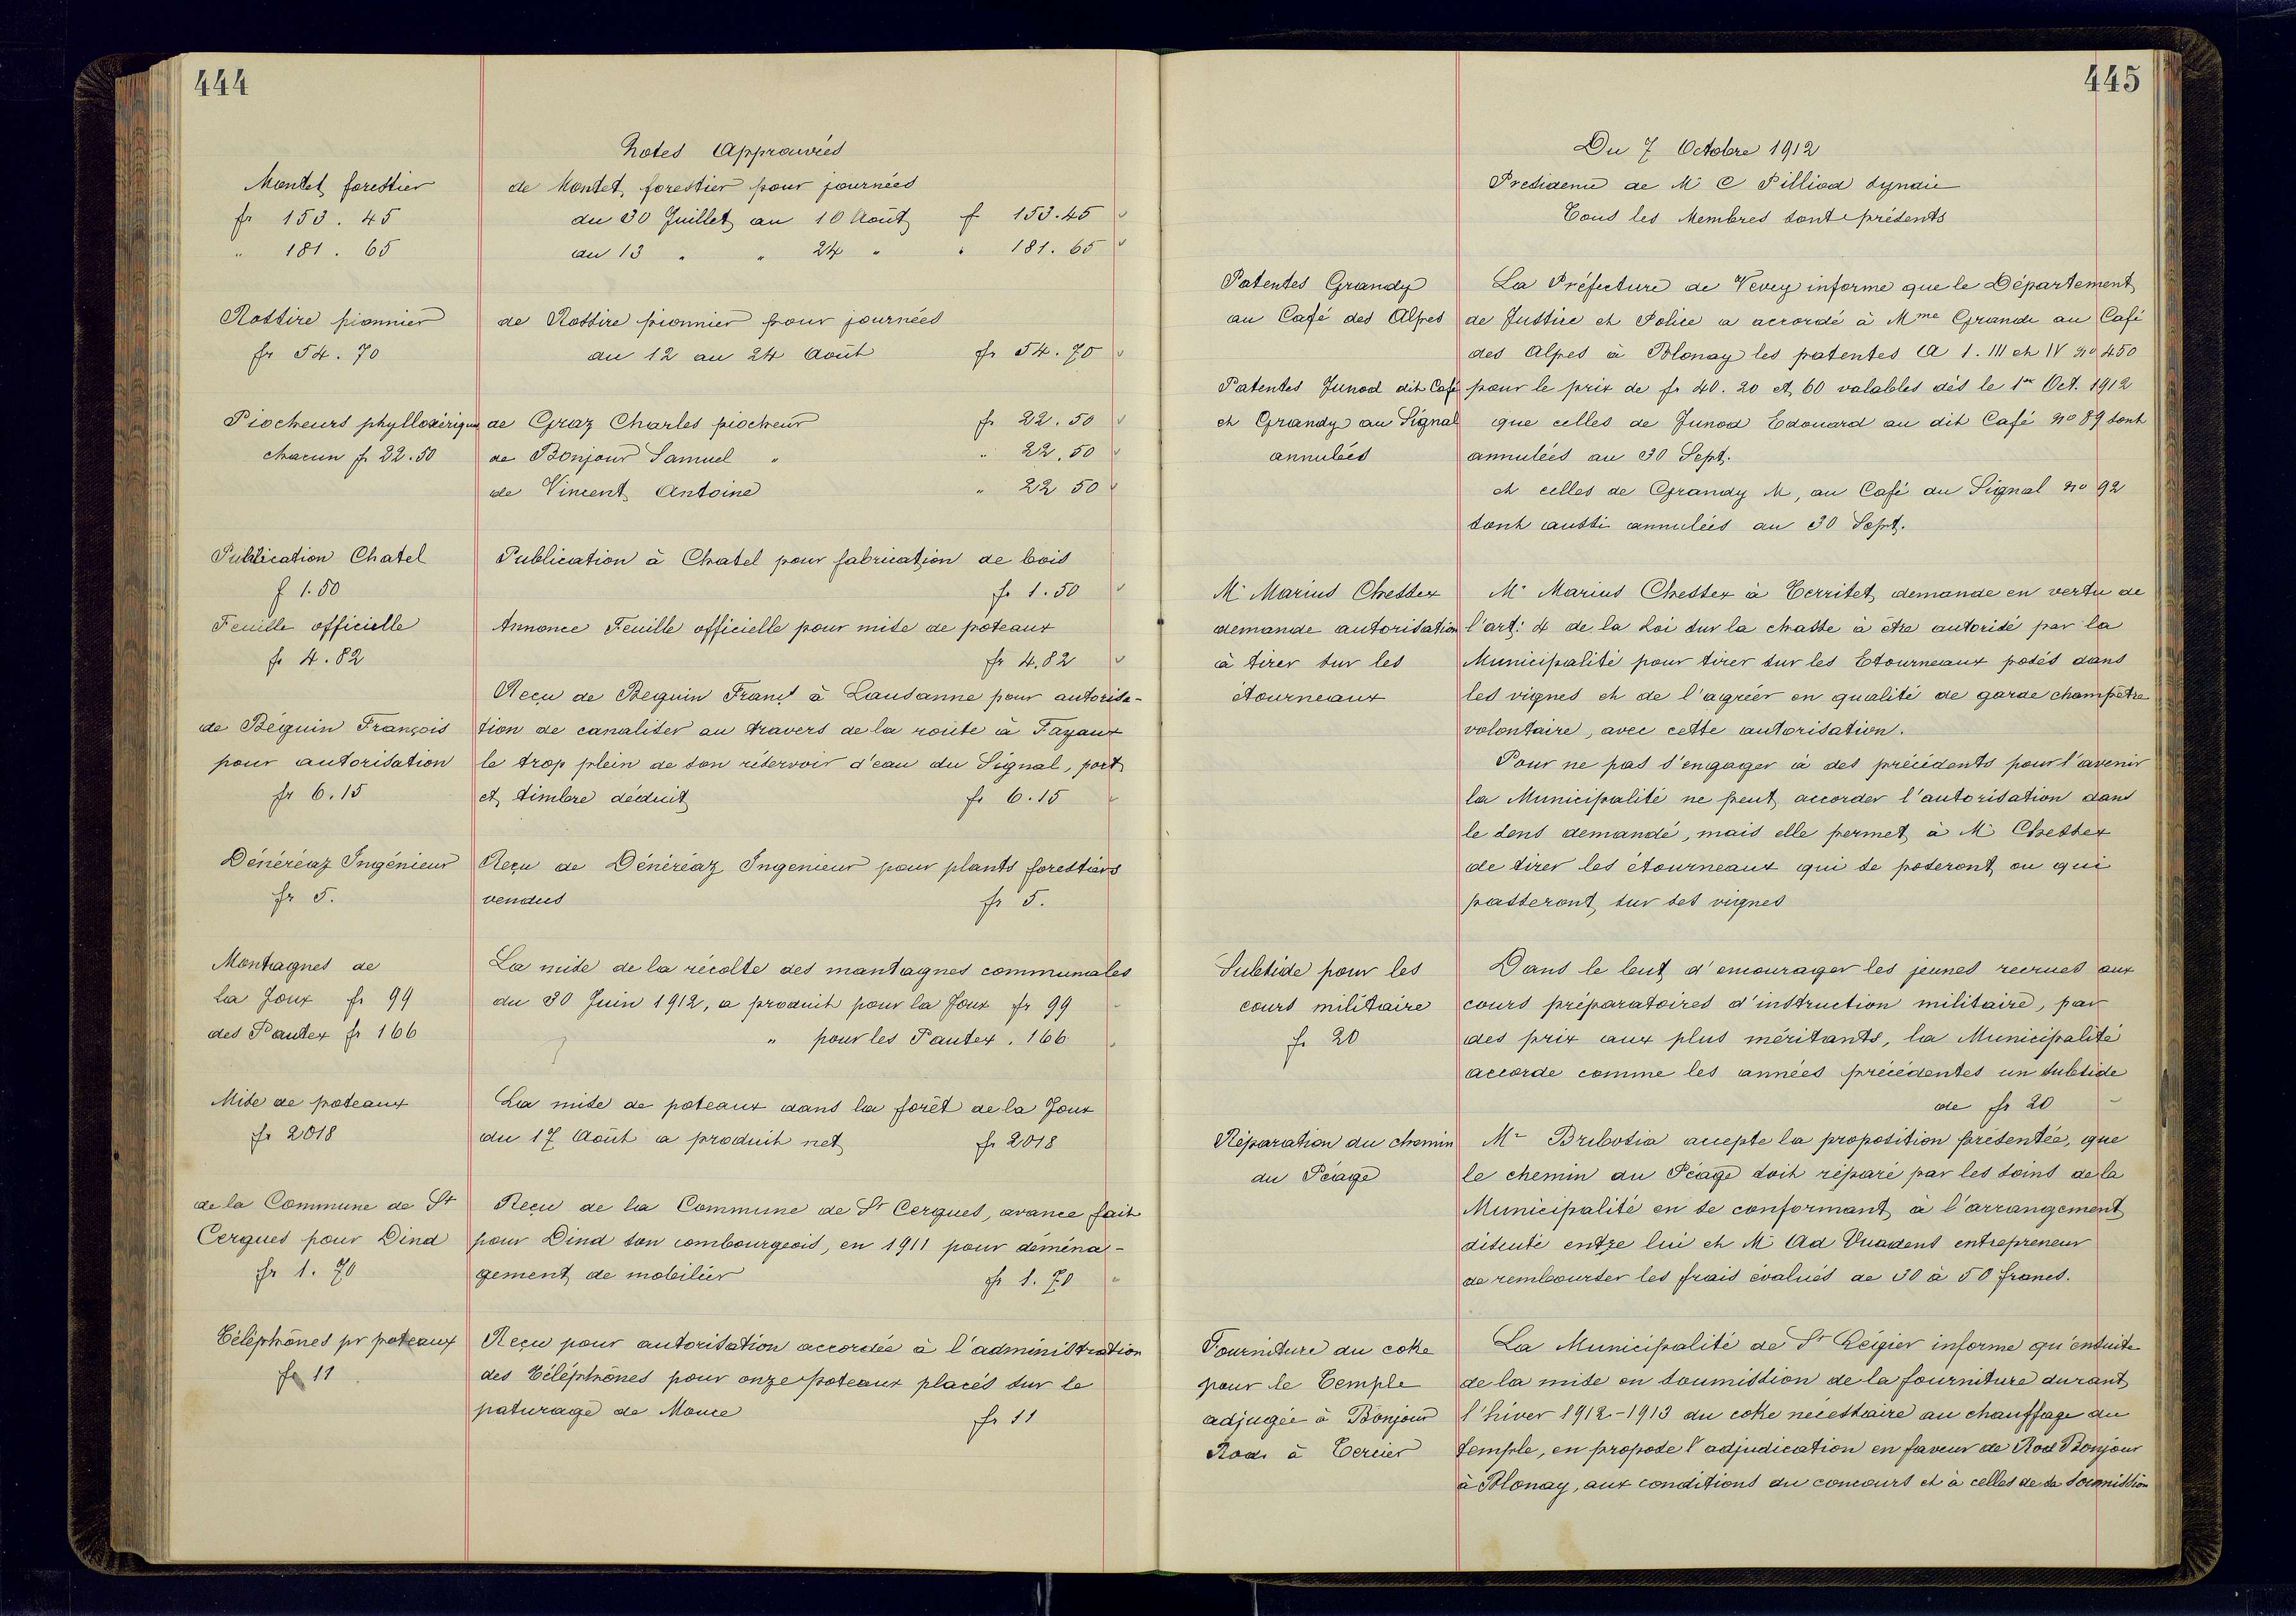 444
Notes Approuvées
Montet forestier
fr 153.45
" 181.65
de Montet, forestier pour journées
du 30 Juillet au 10 Août f 153.45
du 13 " " 24 " " 181.65
Rossire pionnier
fr 54.70
de Rossire pionnier pour journées
du 12 au 24 Août fr 54.70
Piocheurs phylloxériques
chacun fr 22.50
de Graz Charles piocheur fr 22.50
de Bonjour Samuel " " 22.50
de Vincent Antoine " 22 50
Publication Chatel
f 1.50
Publication à Chatel pour fabrication de bois
fr 1.50
Feuille officielle
fr 4.82
Annonce Feuille officielle pour mise de poteaux
fr 4.82
de Béguin François
pour autorisation
fr 6.15
Reçu de Beguin Franç à Lausanne pour autorisa-
tion de canaliser au travers de la route à Fayaux
le trop plein de son réservoir d'eau du Signal, port
et timbre déduit fr 6.15
Dénéréaz Ingénieur
fr 5.
Reçu de Dénéréaz Ingenieur pour plants forestiers
vendus fr 5.
Montagnes de
la Joux fr 99
des Pautex fr 166
La mise de la récolte des montagnes communales
du 30 Juin 1912, a produit pour la Joux fr 99
" pour les Pautex . 166
Mise de poteaux
fr 2018
La mise de poteaux dans la forêt de la Joux
du 17 Août a produit net fr 2018
de la Commune de St
Cergues pour Dind
fr 1.70
Reçu de la Commune de St Cergues, avance fait
pour Dind son combourgeois, en 1911 pour déména-
gement de mobilier fr 1.70
Téléphônes pr poteaux
fr 11
Reçu pour autorisation accordée à l'administration
des Téléphônes pour onze poteaux placés sur le
paturage de Mouce fr 11
445
Du 7 Octobre 1912
Presidence de Mr C Pilliod Syndic
Tous les Membres sont présents
Patentes Grandy
au Café des Alpes
La Préfecture de Vevey informe que le Département
de Justice et Police a accordé à Mme Grande au Café
des Alpes à Blonay les patentes A 1. III et IV no 450
Patentes Junod dit Café
et Grandy au Signal
annulées
pour le prix de fr 40.20 et 60 valables dès le 1er Oct. 1912
que celles de Junod Edouard au dit Café no 89 sont
annulées au 30 Sept.
et celles de Grandy M, au Café du Signal no 92
sont aussi annulées au 30 Sept.
Mr Marius Chessex
demande autorisation
à tirer sur les
étourneaux
Mr Marius Chessex à Territet, demande en vertu de
l'art: 4 de la Loi sur la chasse à être autorisé par la
Municipalité pour tirer sur les Etourneaux posés dans
les vignes et de l'agréer en qualité de garde champêtre
volontaire, avec cette autorisation.
Pour ne pas s'engager à des précédents pour l'avenir
la Municipalité ne peut accorder l'autorisation dans
le sens demandé, mais elle permet à Mr Chessex
de tirer les étourneaux qui se poseront ou qui
passeront sur ses vignes
Subside pour les
cours militaire
fr 20
Dans le but d'encourager les jeunes recrues aux
cours préparatoires d'instruction militaire, par
des prix aux plus méritants, la Municipalité
accorde comme les années précédentes un subside
de fr 20
Réparation du chemin
du Péage
Mr Bribosia accepte la proposition présentée, que
le chemin du Péage soit réparé par les soins de la
Municipalité en se conformant à l'arrangement
discuté entre lui et Mr Ad Vuadens entrepreneur
de rembourser les frais évalués de 30 à 50 francs.
Fourniture du coke
pour le Temple
adjugée à Bonjour
Rod. à Tercier
La Municipalité de St Légier informe qu'ensuite
de la mise en soumission de la fourniture durant
l'hiver 1912-1913 du coke nécessaire au chauffage du
temple, en propose l'adjudication en faveur de Rod Bonjour
à Blonay, aux conditions du concours et à celles de sa soumission